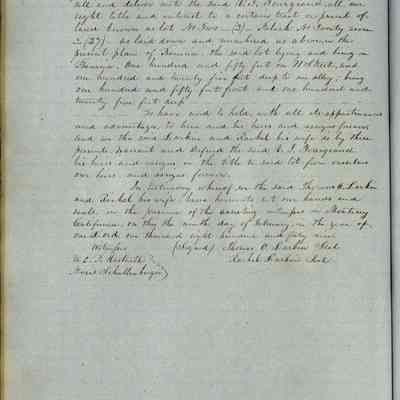 sell and deliver unto the said
right title and interest to a certain tract or parcel of
land known as Lot No Two (2) Block No Twenty seven
(27) as laid down and numbered as above in the
present plan of Benicia, the said lot lying and being in
Benicia, One hundred and fifty feet on
one hundred and twenty five feet deep to an alley; being
one hundred and fifty feet front and one hundred and
twenty five feet deep
To have and to hold, with all its appurtenances
and advantages to him and his heirs and assigns forever
and we the said Larkin and Rachel his wife do by these
presents warrant and defend the said
his heirs and assigns in the title to said lot from ourselves
our heirs and assigns forever.
In testimony whereof we the said Thomas O. Larkin
and Rachel his wife have hereunto set our hands and
seals in the presence of the at Monterey
California on this the ninth day of February, in the year of
our Lord one thousand eight hundred and forty nine
Witness (Signed) Thomas O. Larkin Seal
Rachel Larkin Seal